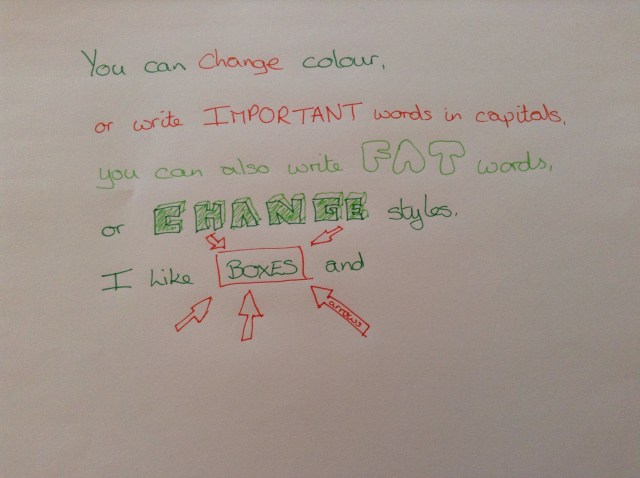 You can change colour,
or write IMPORTANT words in capitals,
you can also write FAT words,
or CHANGE styles.
I like BOXES and
arrows